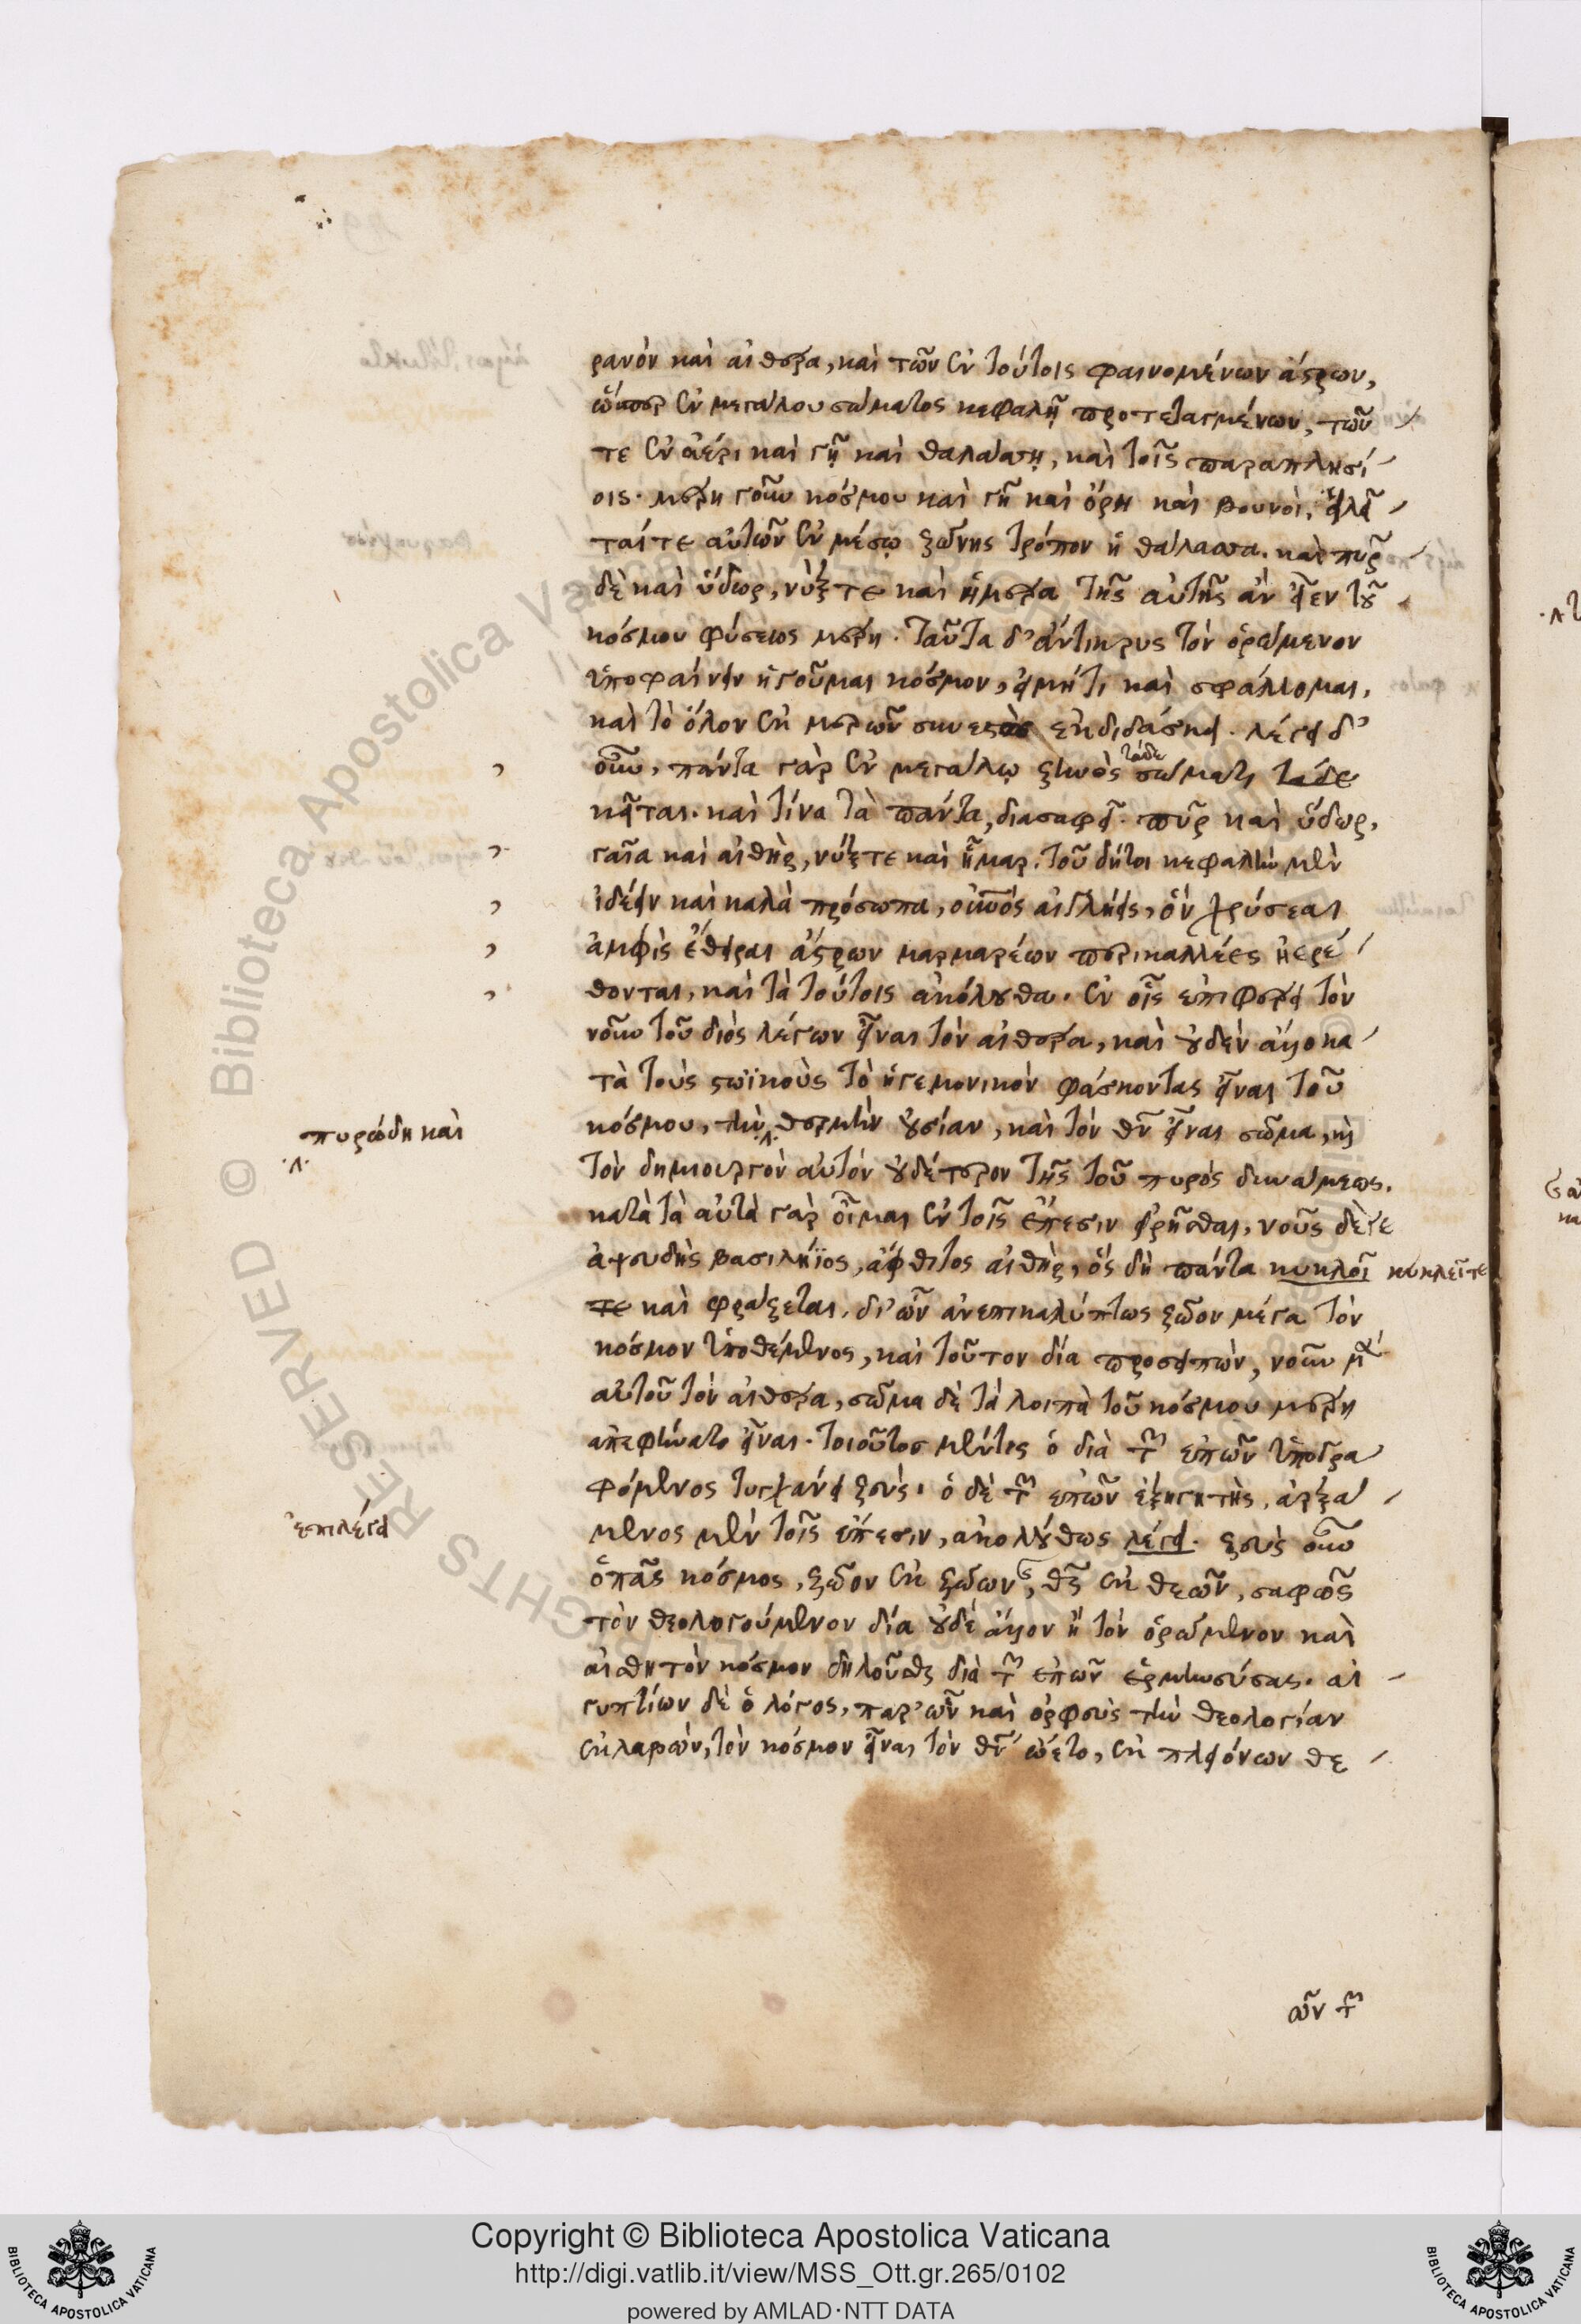 ρανὸν καὶ αἰθέρα, καὶ τῶν ἐν τούτοις φαινομένων ἄστρων,
ὥσπερ ἐν μεγάλου σώματος κεφαλῇ προτεταγμένων, τῶν
τε ἐν ἀέρι καὶ γῇ καὶ θαλάσσῃ, καὶ τοῖς παραπλησί
οις. μέρη γοῦν κόσμου καὶ γῆ καὶ ὄρη καὶ βουνοὶ, εἰλεῖ
ταί τε αὐτῶν ἐν μέσῳ ζώνης τρόπον ἡ θάλασσα. καὶ πῦρ
δὲ καὶ ὕδωρ, νύξ τε καὶ ἡμέρα τῆς αὐτῆς ἂν εἶεν τοῦ
κόσμου φύσεως μέρη. ταῦτα δ' ἄντικρυς τὸν ὁρώμενον
ὑποφαίνειν ἡγοῦμαι κόσμον, εἰ μή τι καὶ σφάλλομαι,
καὶ τὸ ὅλον ἐκ μερῶν συνεστὼς ἐκδιδάσκει. λέγει δ'
οὖν, πάντα γὰρ ἐν μεγάλῳ ζηνὸς τάδε σώματι τάδε
κεῖται. καὶ τίνα τὰ πάντα, διασαφεῖ. πῦρ καὶ ὕδωρ,
γαῖα καὶ αἰθὴρ, νύξ τε καὶ ἦμαρ. τοῦ δή τοι κεφαλὴν μὲν
ἰδέειν καὶ καλὰ πρόσωπα, οὐρανὸς αἰγλήεις, ὃν χρύσεαι
ἀμφὶς ἔθειραι ἄστρων μαρμαρέων περικαλλέες ἠερέ
θονται, καὶ τὰ τούτοις ἀκόλουθα. ἐν οἷς ἐπιφέρει τὸν
νοῦν τοῦ διὸς λέγων εἶναι τὸν αἰθέρα, καὶ οὐδὲν ἄλλο κα
τὰ τοὺς στωϊκοὺς τὸ ἡγεμονικὸν φάσκοντας εἶναι τοῦ
πυρώδη καὶ
κόσμου, τὴν θερμὴν οὐσίαν, καὶ τὸν θν εἶναι σῶμα, καὶ
τὸν δημιουργὸν αὐτὸν οὐδέτερον τῆς τοῦ πυρὸς δυνάμεως.
κατὰ τὰ αὐτὰ γὰρ οἶμαι ἐν τοῖς ἔπεσιν εἰρῆσθαι, νοῦς δέ γε
ἀψευδὴς βασιλήϊος, ἄφθιτος αἰθὴρ, ὃς δὴ πάντα κυκλοῖ κυκλεῖ τε
τε καὶ φράζεται. δι' ὧν ἀνεπικαλύπτως ζῶον μέγα τὸν
κόσμον ὑποθέμενος, καὶ τοῦτον δία προσειπὼν, νοῦν μὲν
αὐτοῦ τὸν αἰθέρα, σῶμα δὲ τὰ λοιπὰ τοῦ κόσμου μέρη
ἀπεφήνατο εἶναι. τοιοῦτος μέν τις ὁ διὰ τῶν ἐπῶν ὑπογρα
φόμενος τυγχάνει ζεύς. ὁ δὲ τῶν ἐπῶν ἐξηγητὴς, ἀρξά
ἐπιλέγει
μενος μὲν τοῖς ἔπεσιν, ἀκολούθως λέγει. ζεὺς οὖν
ὁ πᾶς κόσμος, ζῶον ἐκ ζώων, θς ἐκ θεῶν, σαφῶς
τὸν θεολογούμενον δία οὐδὲ ἄλλον ἢ τὸν ὁρώμενον καὶ
αἰσθητὸν κόσμον δηλοῦσθαι διὰ τῶν ἐπῶν ἑρμηνεύσας. αἰ
γυπτίων δὲ ὁ λόγος, παρ' ὧν καὶ ὀρφεὺς τὴν θεολογίαν
ἐκλαβὼν, τὸν κόσμον εἶναι τὸν θν ᾤετο, ἐκ πλειόνων θε
ῶν τῶν
Copyright © Biblioteca Apostolica Vaticana
http://digi.vatlib.it/view/MSS_Ott.gr.265/0102
powered by AMLAD·NTT DATA